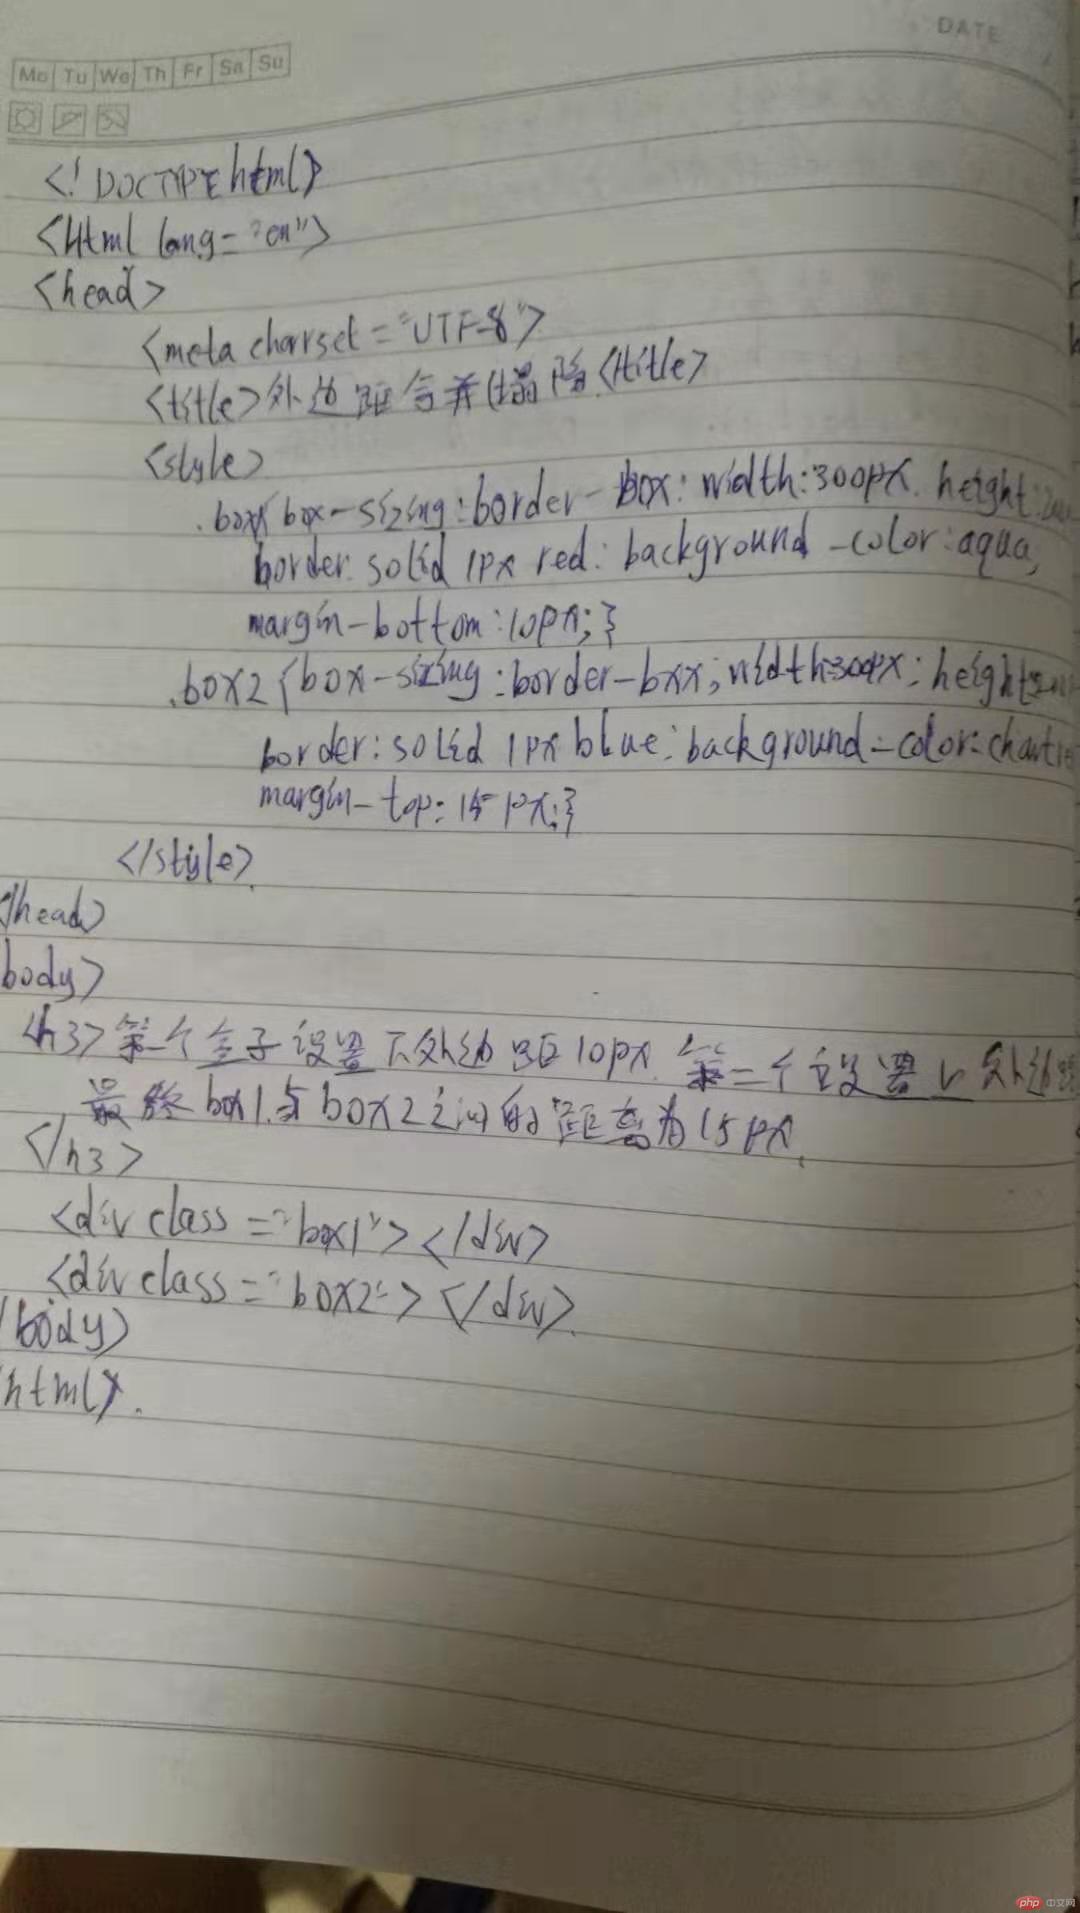 DATE
Mo Tu We Th Fr Sa Su
<! DOCTYPE html>
<Html lang="en">
<head>
<meta charset="UTF-8">
<title>外边距合并(塌陷</title>
<style>
.box{ box-sizing:border-box; width:300px. height:
border: solid 1px red: background-color:aqua;
margin-bottom:10px; }
.box2{box-sizing:border-bxx; width:300px; height:
border:solid 1px blue; background-color:chartre
margin-top: 15px;}
</style>
/head>
body>
<h3>第一个盒子设置下外边距10px. 第二个设置上外边距
最终box1与box2之间的距离为15px.
</h3>
<div class="box1"></div>
<div class="box2"></div>.
/body>
html>.
php 中文网